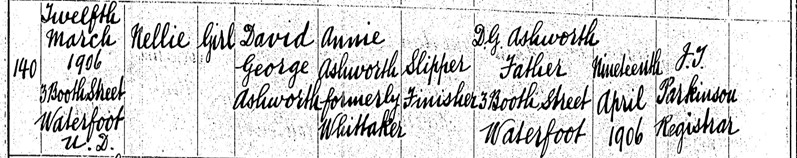 140
Twelfth
March
1906
3 Booth Street
Waterfoot
U.D.
Nellie
Girl
David
George
Ashworth
Annie
Ashworth
formerly
Whittaker
Slipper
Finisher
D.G. Ashworth
Father
3 Booth Street
Waterfoot
Nineteenth
April
1906
J.T.
Parkinson
Registrar